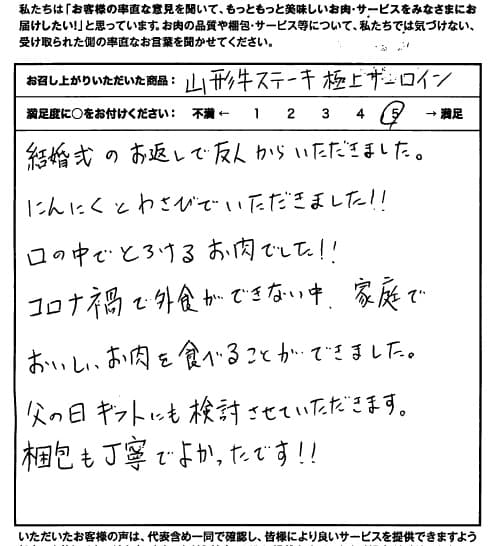 私たちは「お客様の率直な意見を聞いて、もっともっと美味しいお肉・サービスをみなさまにお
届けしたい!」と思っています。お肉の品質や梱包・サービス等について、私たちでは気づけない、
受け取られた側の率直なお言葉を聞かせてください。
お召し上がりいただいた商品: 山形牛ステーキ極上サーロイン
満足度に○をお付けください: 不満 ← 1 2 3 4 5 → 満足
結婚式のお返しで友人からいただきました。
にんにくとわさびでいただきました!!
口の中でとろけるお肉でした!!
コロナ禍で外食ができない中、家庭で
おいしいお肉を食べることができました。
父の日ギフトにも検討させていただきます。
梱包も丁寧でよかったです!!
いただいたお客様の声は、代表含め一同で確認し、皆様により良いサービスを提供できますよう